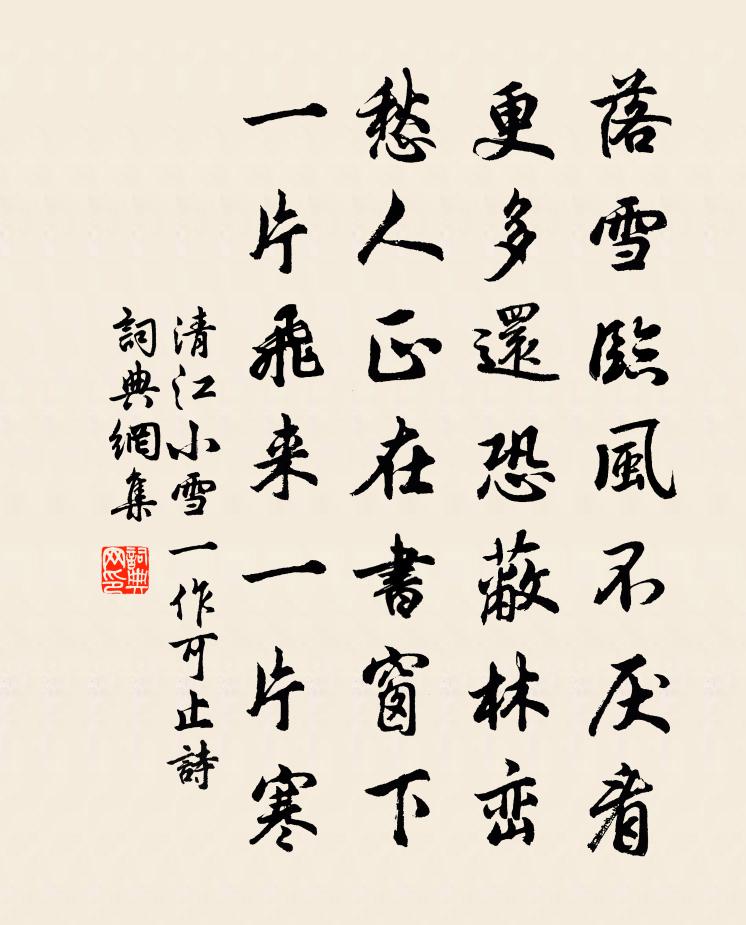 落雪臨風不厌看
更多還恐蔽林峦
愁人正在書窗下
一片飛来一片寒
清江小雪一作可止詩
詞典網集
詞典网印